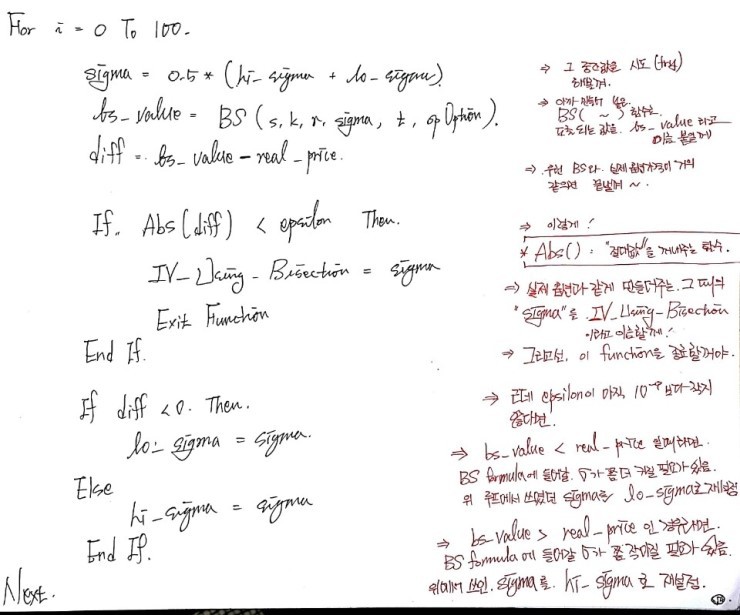 For i = 0 To 100.
sigma = 0.5 * (hi_sigma + lo_sigma)
⇒ 그 중간값을 시도 (try)
해볼게.
bs_value = BS (s, k, r, sigma, t, opOption).
⇒ 아까 만들어 놓은
BS( ~ ) 함수로
도출되는 값을 bs_value 라고
이름 붙일게
diff = bs_value - real_price.
⇒ 우현 BS와 실제옵션가격이 거의
같으면 끝낼게 ~.
If. Abs(diff) < epsilon Then.
⇒ 이렇게!
* Abs() : "절대값"을 꺼내주는 함수.
IV_Using_Bisection = sigma
⇒ 실제 옵션과 같게 만들어주는 그 때의
"sigma"를 IV_Using_Bisection
이라고 이름할게!
Exit Function
⇒ 그리고선, 이 function을 종료할꺼야.
End If.
If diff < 0. Then.
⇒ 근데 epsilon이 아직 보다 작지
않다면.
lo_sigma = sigma.
⇒ bs_value < real_price 일때라면.
BS formula에 들어갈 σ가 좀 더 커질 필요가 있음.
위 루프에서 쓰였던 sigma를 lo_sigma로 재설정
Else
hi_sigma = sigma
⇒ bs_value > real_price 인 경우라면.
BS formula에 들어갈 σ가 좀 작아질 필요가 있음.
위에서 쓰인 sigma를 hi_sigma로 재설정.
End If.
Next.